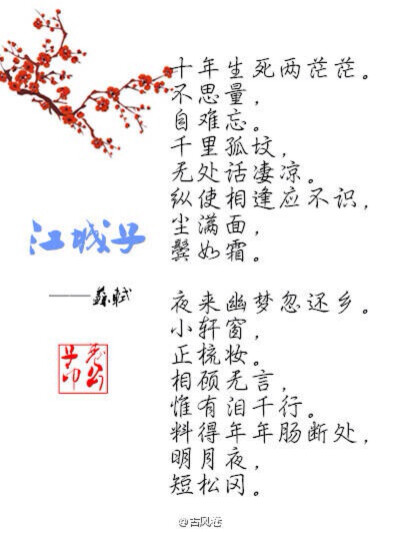 十年生死两茫茫。
不思量，
自难忘。
千里孤坟，
无处话凄凉。
纵使相逢应不识，
尘满面，
鬓如霜。
江城子
——苏轼
夜来幽梦忽还乡。
小轩窗，
正梳妆。
相顾无言，
惟有泪千行。
料得年年肠断处，
明月夜，
短松冈。
@古风巷